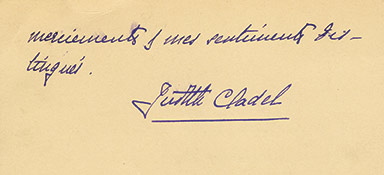 merciements & mes sentiments dis-
tingués.
Judith Cladel